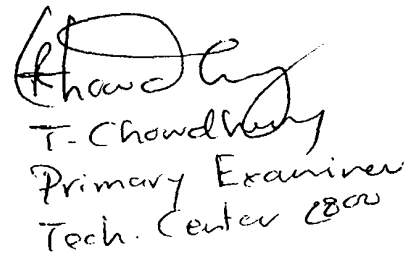 T. Chowdhury
Primary Examiner
Tech. Center